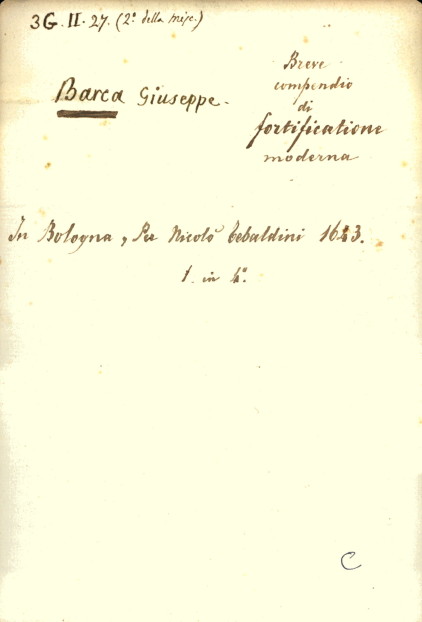 3G. II. 27. (2ª della misc.)
Barca Giuseppe.
Breve
compendio
di
fortificatione
moderna
In Bologna, Per Nicolò Tebaldini 1643.
1. in 4º.
C